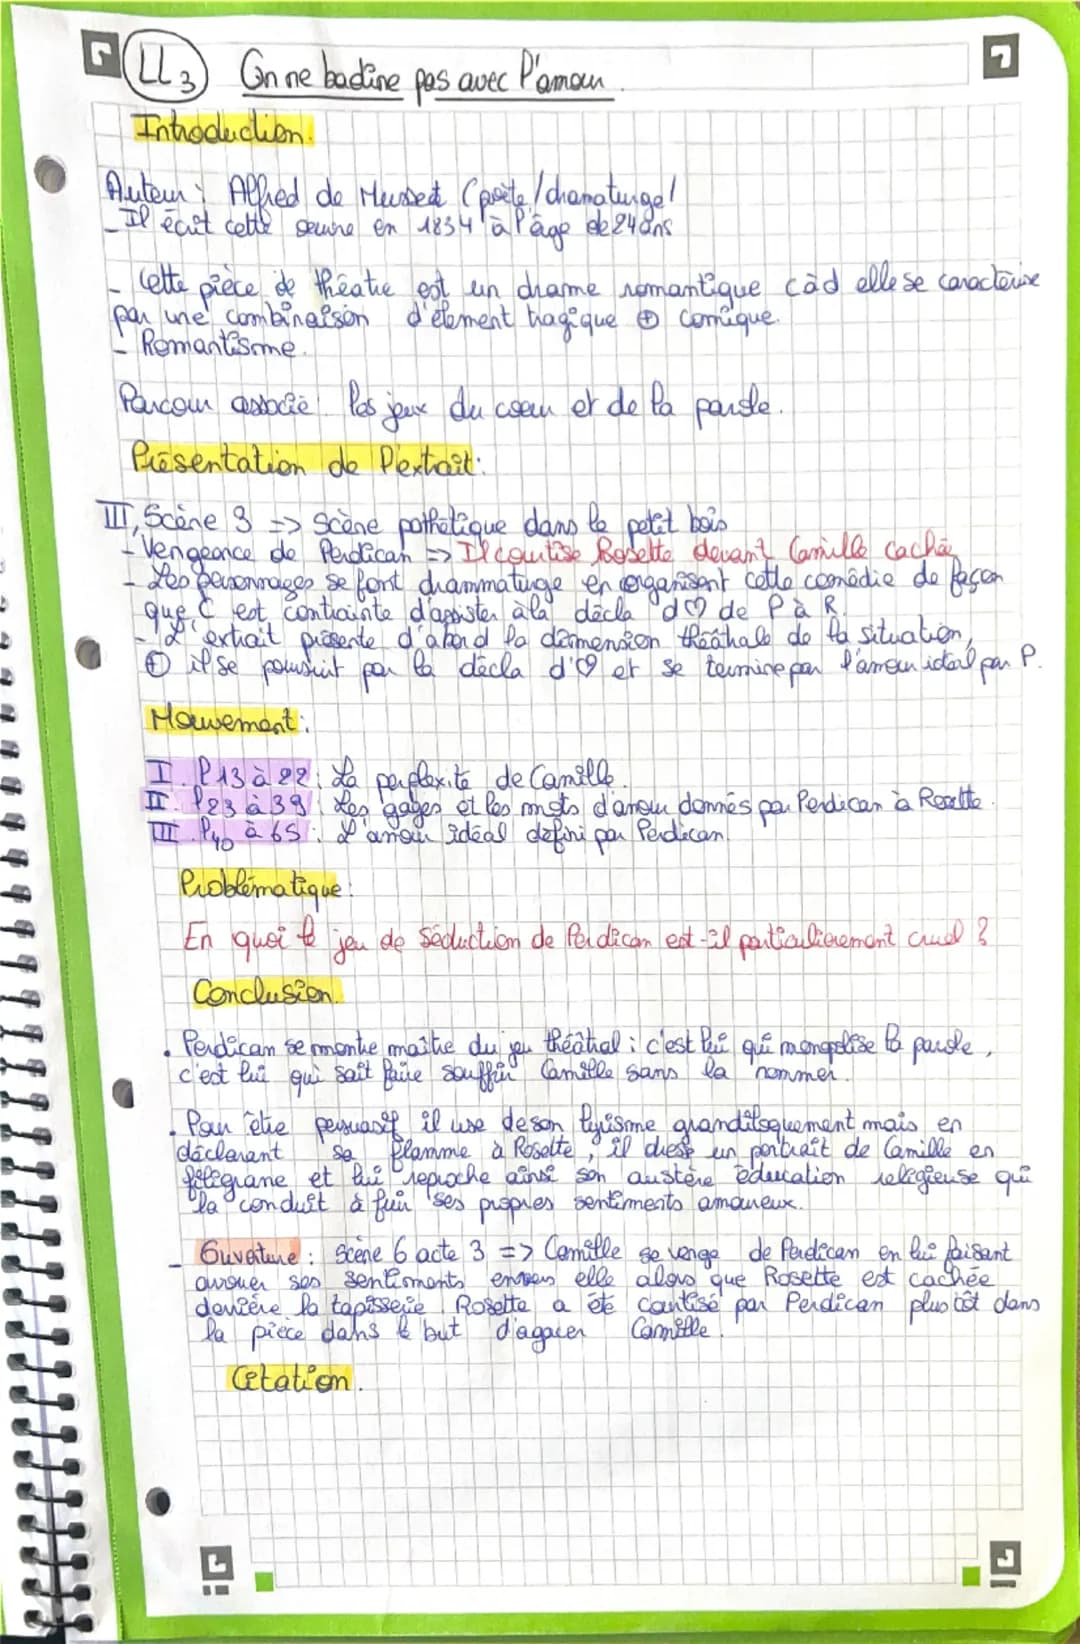 LL3 On ne badine pas avec l'amour
Introduction.
Auteur : Alfred de Musset (poète/dramaturge)
- Il écrit cette œuvre en 1834 à l'âge de 24 ans
- Cette pièce de théatre est un drame romantique càd elle se caractérise
par une combinaison d'élement tragique ⊕ comique.
- Romantisme.
Parcour associé les jeux du coeur et de la parole.
Présentation de l'extrait:
III, Scène 3 => Scène pathétique dans le petit bois
- Vengeance de Perdican => Il courtise Rosette devant Camille cachée
- Les personnages se font drammaturge en organisant cette comédie de façon
que C est contrainte d'assister à la décla d♡ de P à R.
- L'extrait présente d'abord la dimension théâtrale de la situation,
⊕ il se poursuit par la décla d'♡ et se termine par l'amour idéal par P.
Mouvement:
I. l 13 à 22: La perplexité de Camille.
II. l 23 à 39: Les gages et les mots d'amour donnés par Perdican à Rosette.
III. l 40 à 65: L'amour idéal défini par Perdican.
Problématique:
En quoi le jeu de séduction de Perdican est-il particulièrement cruel ?
Conclusion.
• Perdican se montre maître du jeu théâtral : c'est lui qui monopolise la parole,
c'est lui qui sait faire souffrir Camille sans la nommer.
• Pour être persuasif il use de son lyrisme grandiloquement mais en
déclarant sa flamme à Rosette, il dresse un portrait de Camille en
filigrane et lui reproche ainsi son austère éducation religieuse qui
la conduit à fuir ses propres sentiments amoureux.
- Ouverture : scène 6 acte 3 => Camille se venge de Perdican en lui faisant
avouer ses sentiments envers elle alors que Rosette est cachée
derrière la tapisserie. Rosette a été courtisé par Perdican plus tôt dans
la pièce dans le but d'agacer Camille.
Citation.